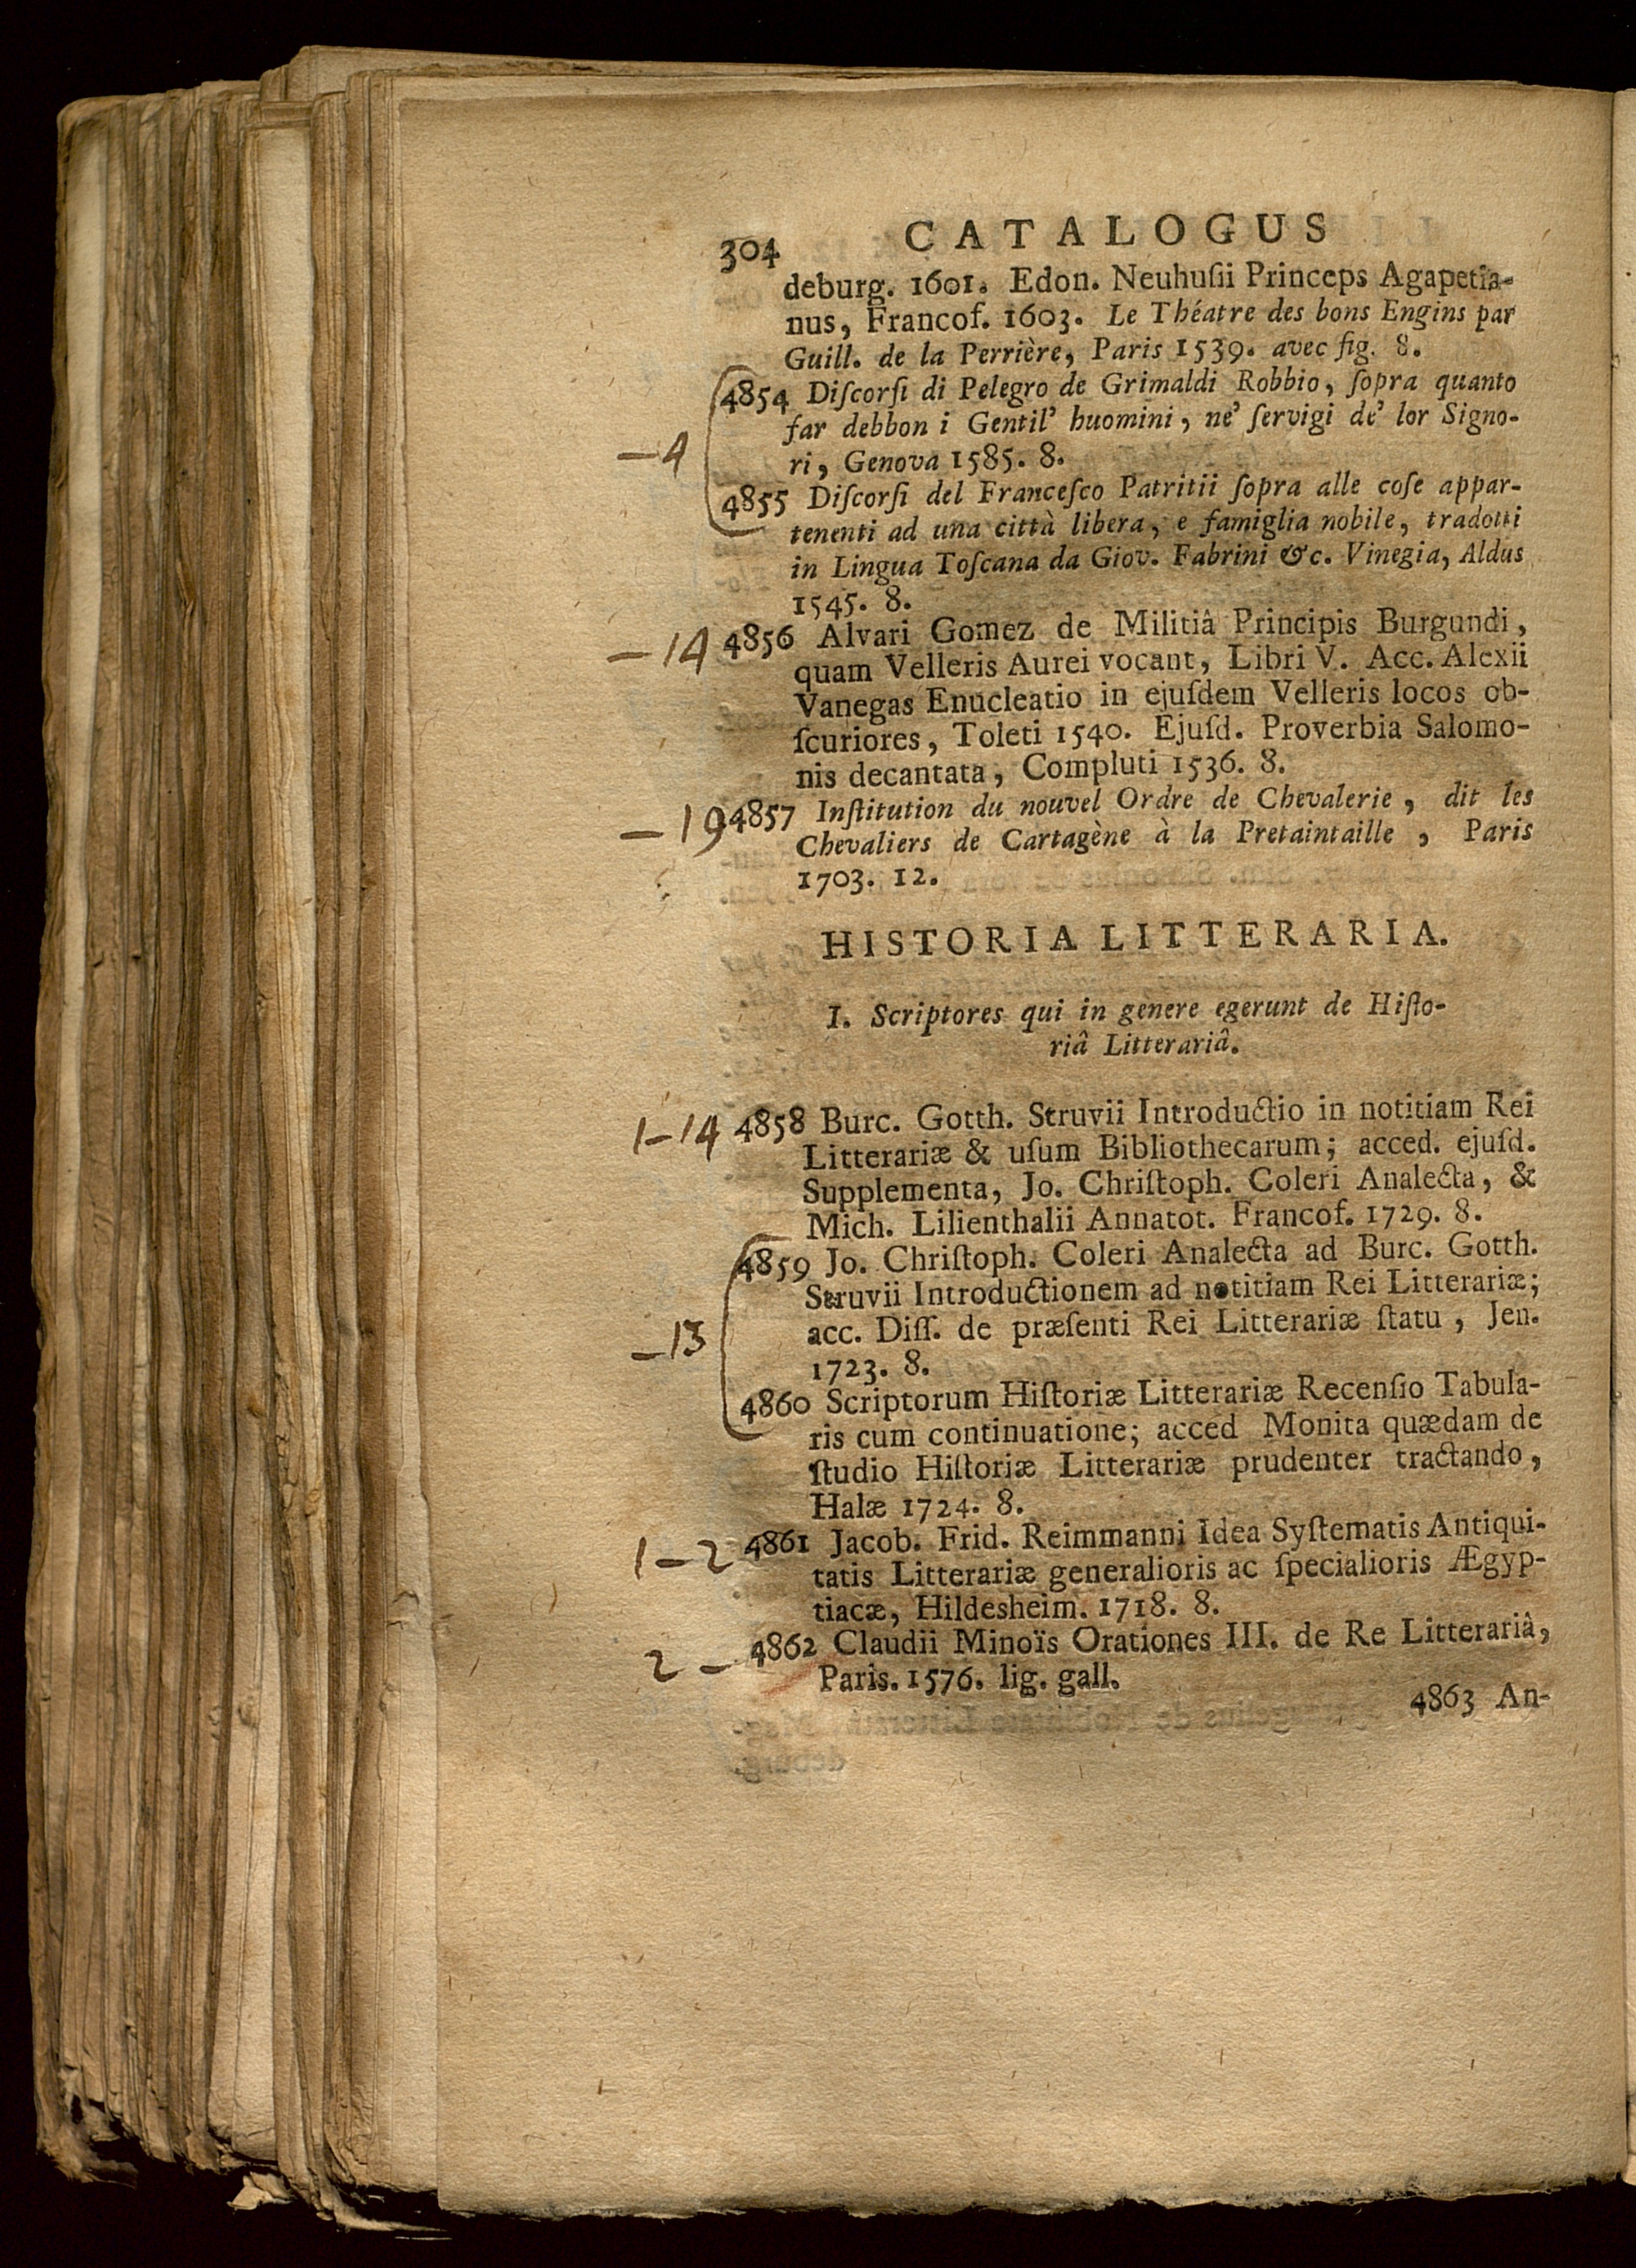 304 CATALOGUS
deburg. 1601. Edon. Neuhuſii Princeps Agapetia-
nus, Francof. 1603. Le Théatre des bons Engins par
Guill. de la Perrière, Paris 1539. avec fig. 8.
4854 Diſcorſi di Pelegro de Grimaldi Robbio, ſopra quanto
far debbon i Gentil' huomini, ne' ſervigi de' lor Signo-
— 4 ri, Genova 1585. 8.
4855 Diſcorſi del Franceſco Patritii ſopra alle coſe appar-
tenenti ad una città libera, e famiglia nobile, tradotti
in Lingua Toſcana da Giov. Fabrini &c. Vinegia, Aldus
1545. 8.
— 14 4856 Alvari Gomez de Militiâ Principis Burgundi,
quam Velleris Aurei vocant, Libri V. Acc. Alexii
Vanegas Enucleatio in ejuſdem Velleris locos ob-
ſcuriores, Toleti 1540. Ejuſd. Proverbia Salomo-
nis decantata, Compluti 1536. 8.
— 19 4857 Inſtitution du nouvel Ordre de Chevalerie, dit les
Chevaliers de Cartagène à la Pretaintaille, Paris
1703. 12.
HISTORIA LITTERARIA.
I. Scriptores qui in genere egerunt de Hiſto-
riâ Litterariâ.
1 — 14 4858 Burc. Gotth. Struvii Introductio in notitiam Rei
Litterariæ & uſum Bibliothecarum; acced. ejuſd.
Supplementa, Jo. Chriſtoph. Coleri Analecta, &
Mich. Lilienthalii Annatot. Francof. 1729. 8.
4859 Jo. Chriſtoph. Coleri Analecta ad Burc. Gotth.
Struvii Introductionem ad notitiam Rei Litterariæ;
— 13 acc. Diſſ. de præſenti Rei Litterariæ ſtatu, Jen.
1723. 8.
4860 Scriptorum Hiſtoriæ Litterariæ Recenſio Tabula-
ris cum continuatione; acced Monita quædam de
ſtudio Hiſtoriæ Litterariæ prudenter tractando,
Halæ 1724. 8.
1 — 2 4861 Jacob. Frid. Reimmanni Idea Syſtematis Antiqui-
tatis Litterariæ generalioris ac ſpecialioris Ægyp-
tiacæ, Hildesheim. 1718. 8.
2 — 4862 Claudii Minoïs Orationes III. de Re Litterariâ,
Paris. 1576. lig. gall.
4863 An-